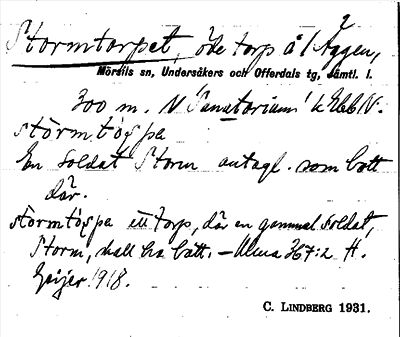 Stormtorpet, öde torp å 1 2 Äggen,
Mörsils sn, Undersåkers och Offerdals tg, Jämtl. l.
300 m. N "Sanatorium" k Ebl N.
stòrmtôspa
En soldat Storm antagl. som bott
där.
stòrmtôspa torp, där en gammal soldat,
Storm, skall ha bott. – Ulma 367:2 H.
Geijer 1918.
C. LINDBERG 1931.